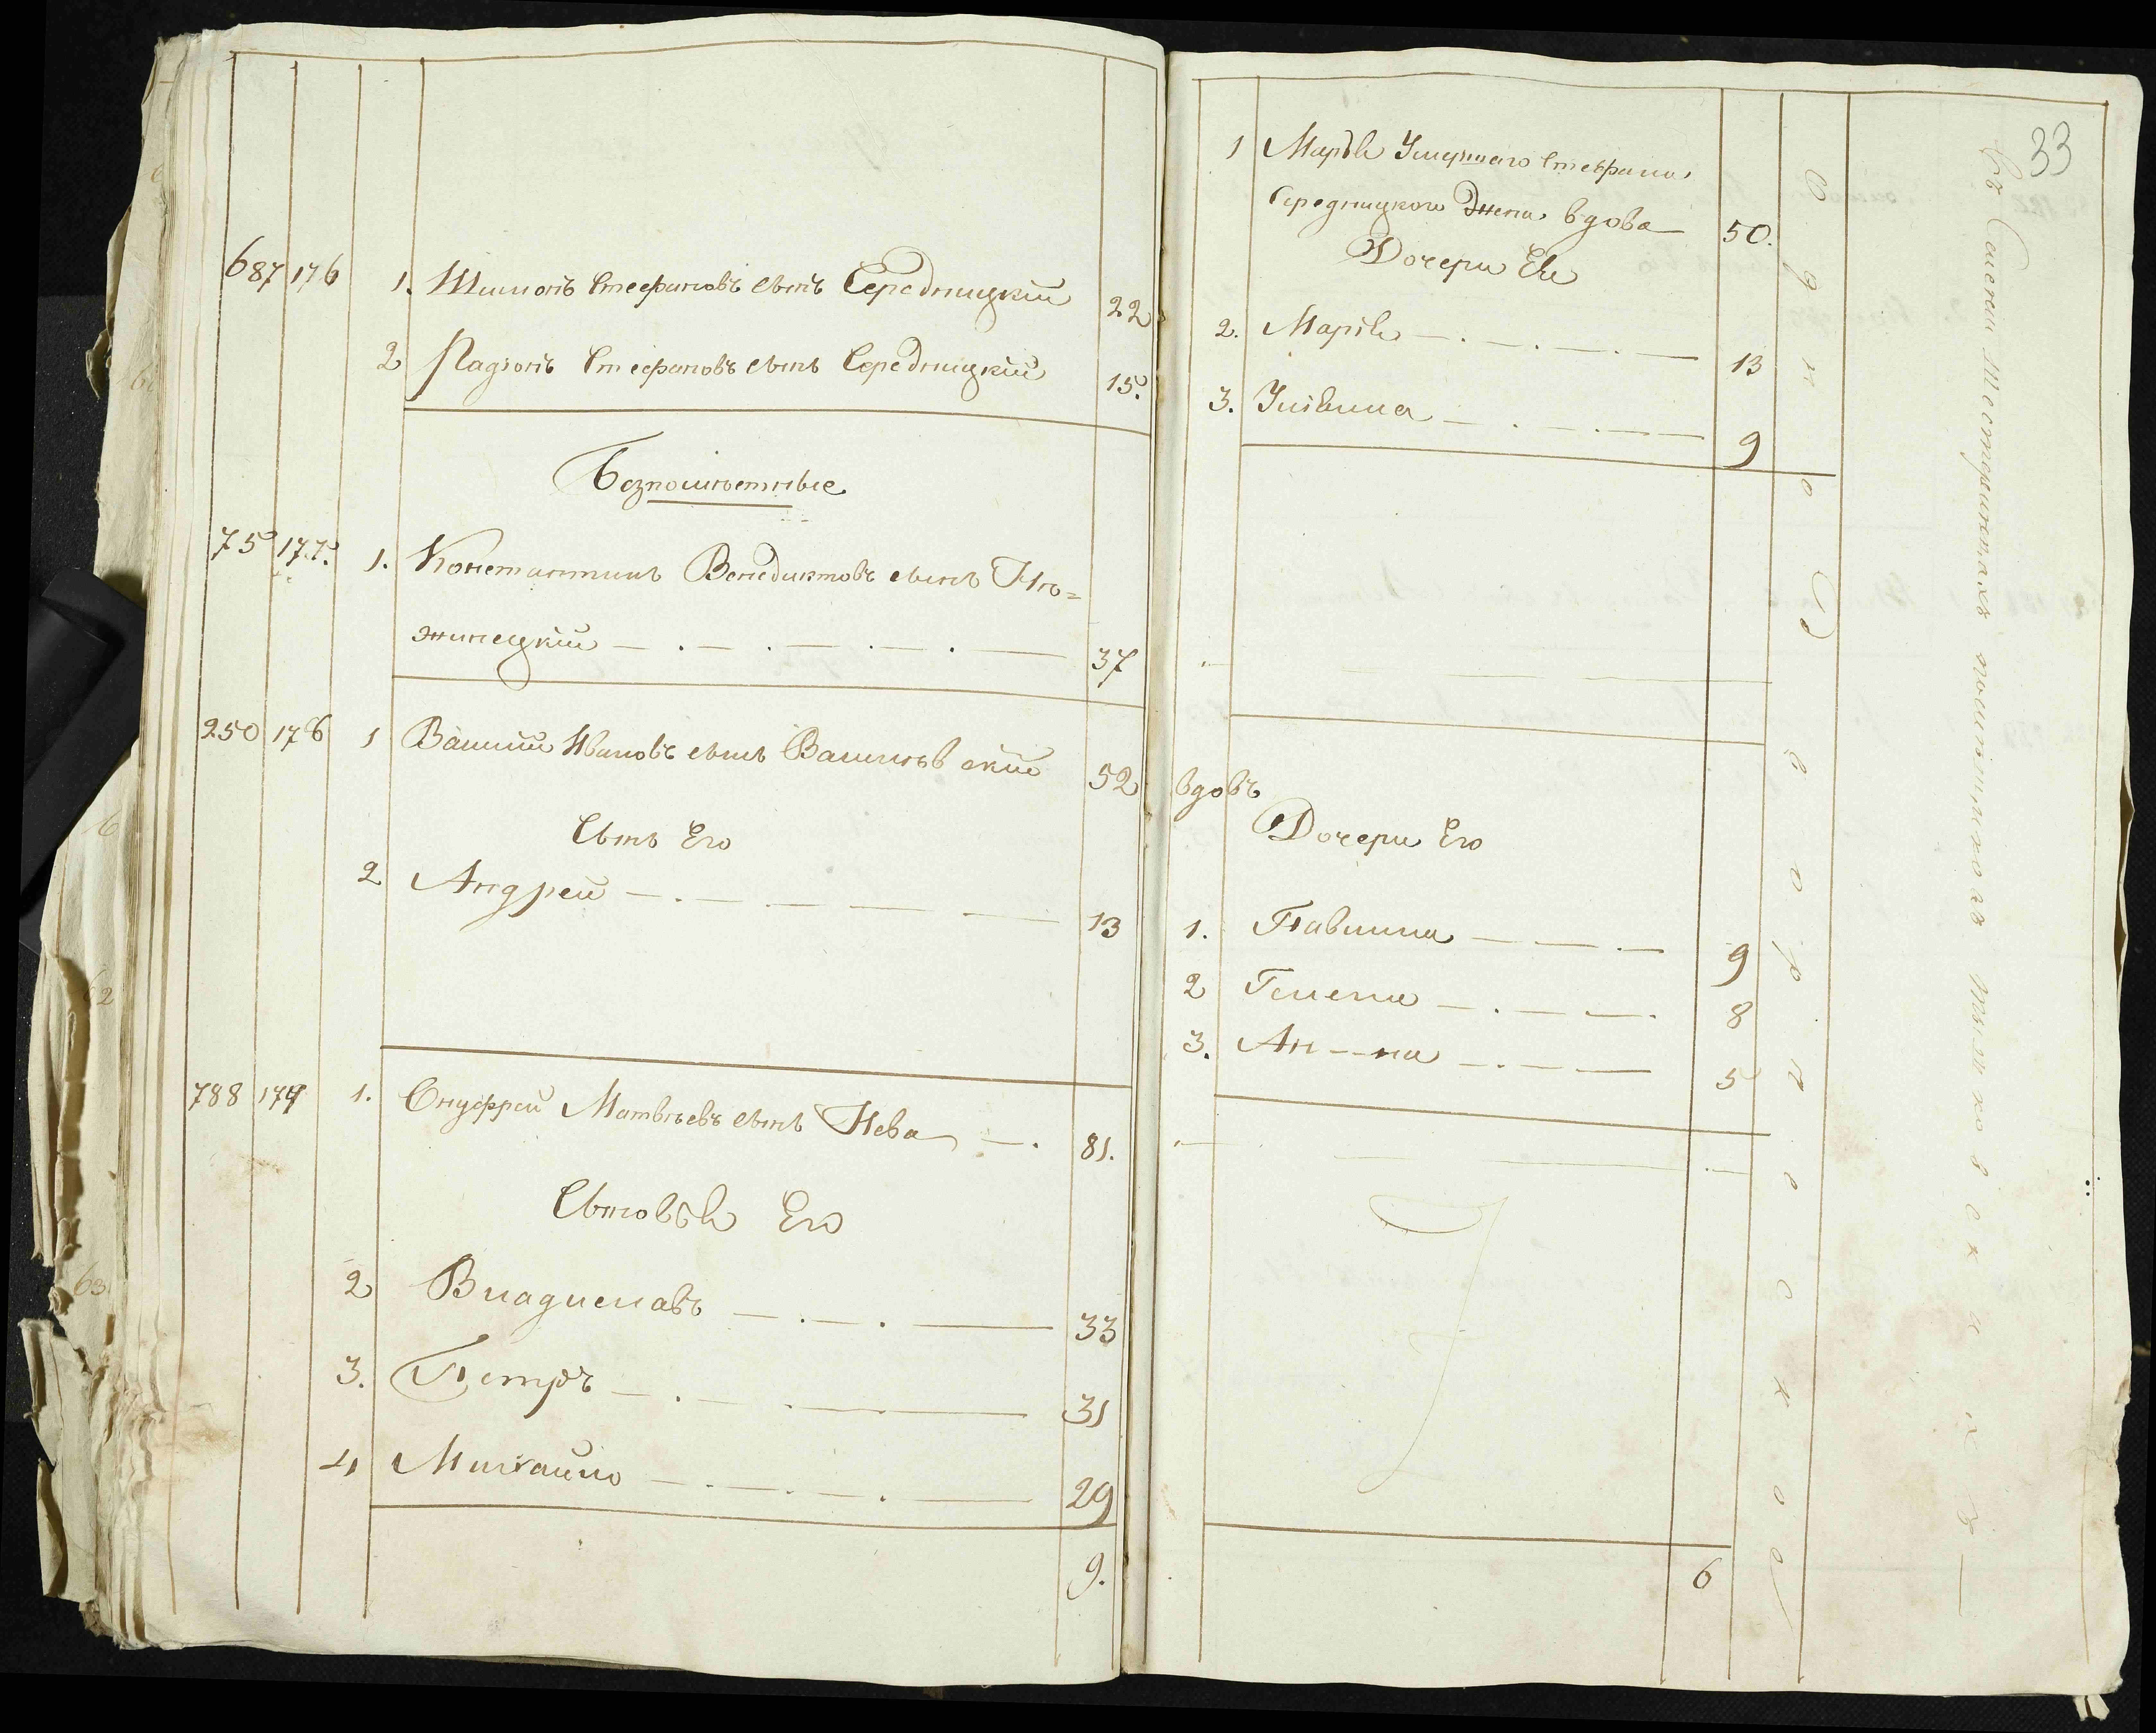 687 176 1. Шимонъ Стефановъ сынъ Середницкій 22
2 Ладіонъ Стефановъ сынъ Середницкій 15.
Безпомѣстные
75 177. 1. Константинъ Венедиктовъ сынъ
жинецкій 37
250 178 1 Василій Ивановъ сынъ 52
Сынъ Его
2 Андрей 13
788 179 1. Онуфрей Матвѣевъ сынъ Нева 81.
Сыновья Его
2 Владиславъ 33
3. Петръ 31
4 Михайло 29
9.
33
1 Марья Умершаго Стефана
Середницкого жена вдова 50.
Дочери Ея
2. Марья 13
3. 9
вдовъ
Дочери Его
1. Павлина 9
2 Гелена 8
3. Анна 5
6
Однодворческое
Въ